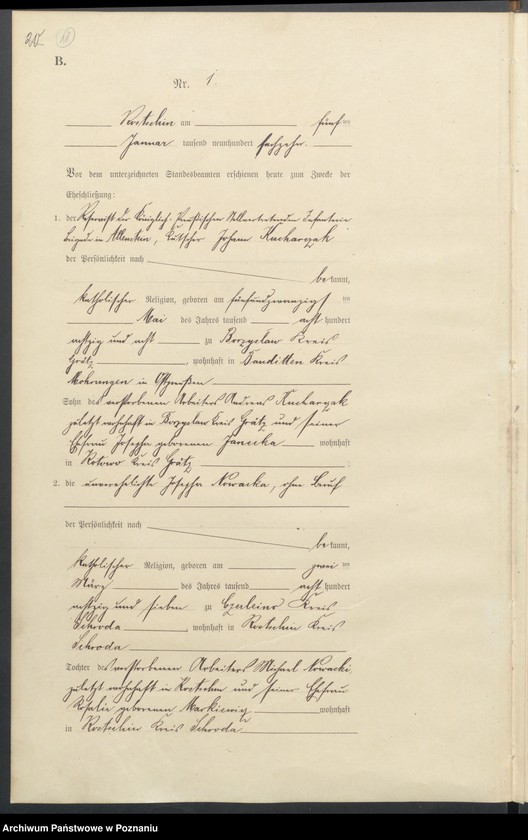 20 18
B.
Nr. 1.
am fünf ten
Januar tausend neunhundert sechzehn.
Vor dem unterzeichneten Standesbeamten erschienen heute zum Zwecke der
Eheschließung:
1. der Königlich Preußischen Infanterie
Brigade in Allenstein, Kutscher Johann Kucharzak
der Persönlichkeit nach
be kannt,
katholischer Religion, geboren am fünfundzwanzigst ten
Mai des Jahres tausend acht hundert
achtzig und acht zu Kreis
Grätz, wohnhaft in Sanditten Kreis
Mohrungen in Ostpreußen
Sohn des verstorbenen Arbeiters Andreas Kucharzak
zuletzt wohnhaft in Kreis Grätz und seiner
Ehefrau Josepha geborenen wohnhaft
in Kotowo Kreis Grätz
2. die unverehelichte Josepha Nowacka, ohne Beruf
der Persönlichkeit nach
be kannt,
katholischer Religion, geboren am zwei ten
März des Jahres tausend acht hundert
achtzig und sieben zu Czerleino Kreis
Schroda, wohnhaft in Kreis
Schroda
Tochter des verstorbenen Arbeiters Michael Nowacki,
zuletzt wohnhaft in und seiner Ehefrau
Rosalie geborenen Markiewicz wohnhaft
in Kreis Schroda
Archiwum Państwowe w Poznaniu